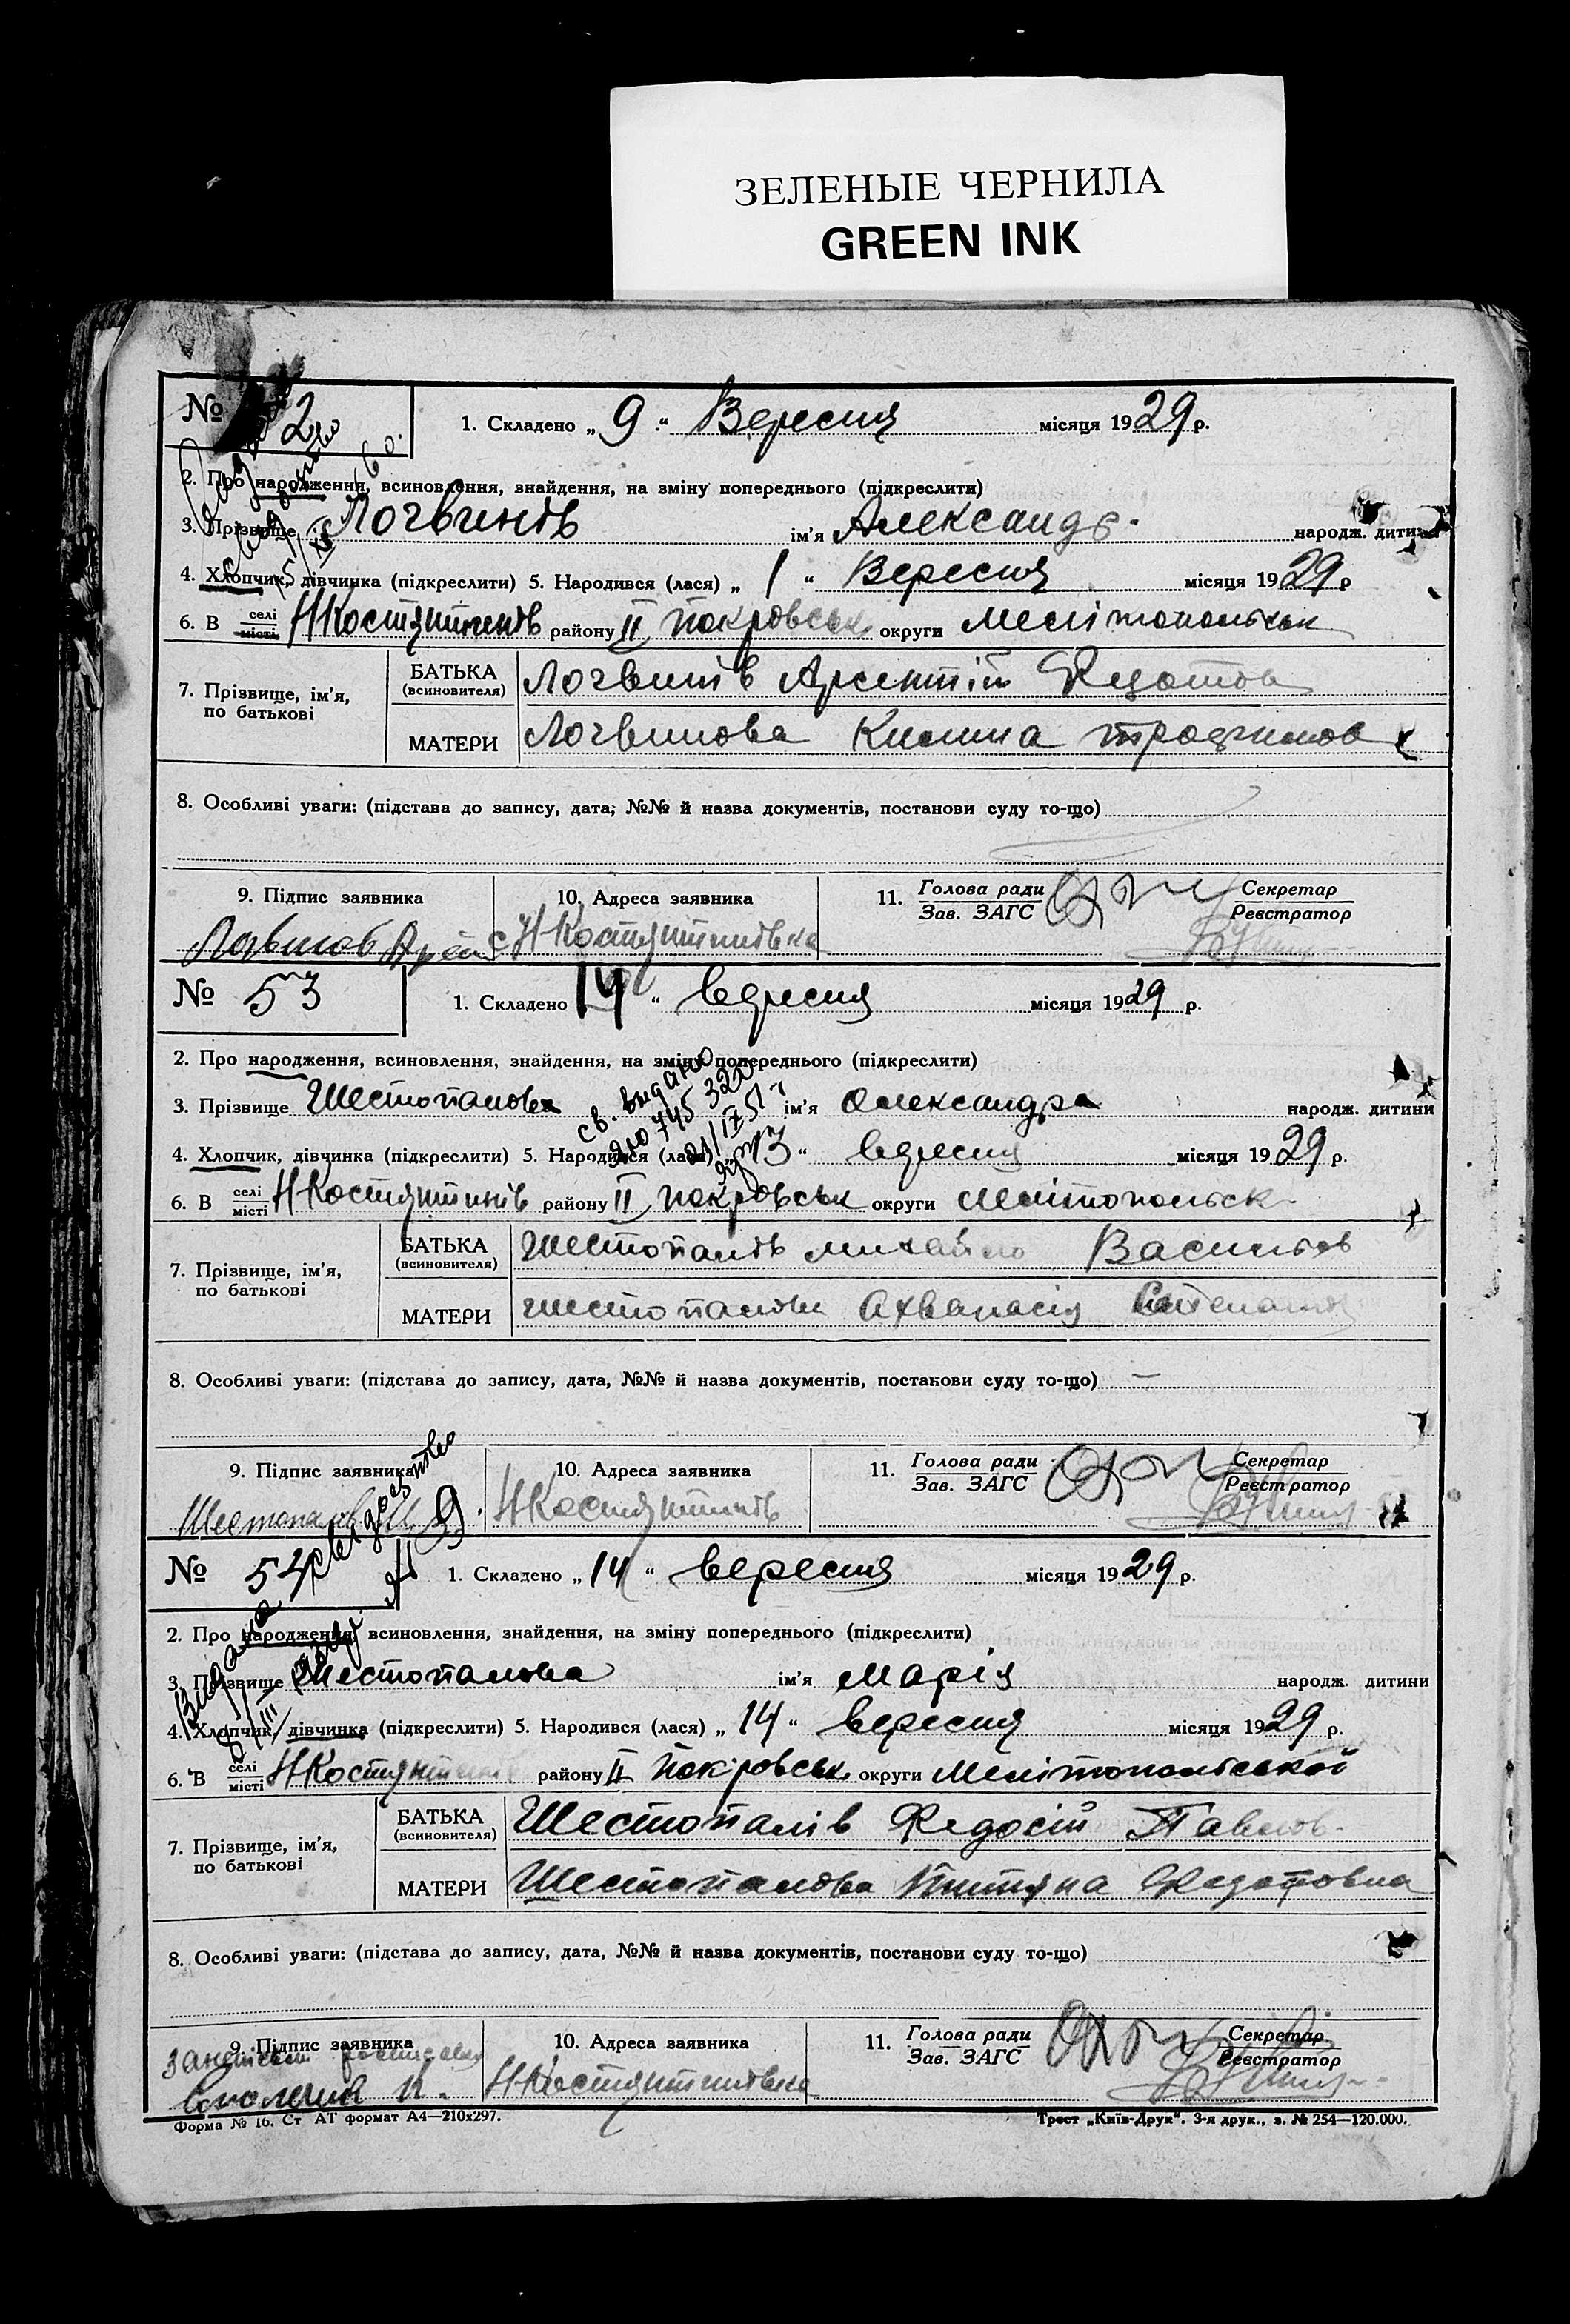 ЗЕЛЕНЫЕ ЧЕРНИЛА
GREEN INK
№ 2 1. Складено „ 9 “ Вересня місяця 1929 р.
2. Про народження, всиновлення, знайдення, на зміну попереднього (підкреслити)
3. Прізвище Логвинів ім'я Александр народж. дитини
4. Хлопчик, дівчинка (підкреслити) 5. Народився (лася) „ 1 “ Вересня місяця 1929 р
6. В селі місті НКостянтинів району II Покровськ округи Мелітопольськ
7. Прізвище, ім'я, по батькові
БАТЬКА (всиновителя) Логвинів Арсентій Федотов
МАТЕРИ Логвинова Килина
8. Особливі уваги: (підстава до запису, дата, №№ й назва документів, постанови суду то-що)
9. Підпис заявника 10. Адреса заявника 11. Голова ради Зав. ЗАГС Секретар Реєстратор
Логвинов с НКостянтинівка
№ 53 1. Складено 14 “ вересня місяця 1929 р.
2. Про народження, всиновлення, знайдення, на зміну попереднього (підкреслити)
св. выдано
3. Прізвище Шестопалова ім'я Олександра народж. дитини
4. Хлопчик, дівчинка (підкреслити) 5. Народився (лася) 13 “ вересня місяця 1929 р.
6. В селі місті НКостянтинів району II Покровськ округи Мелітопольськ
7. Прізвище, ім'я, по батькові
БАТЬКА (всиновителя) Шестопалів Михайло Васильов
МАТЕРИ Шестопалова Ахванасія
8. Особливі уваги: (підстава до запису, дата, №№ й назва документів, постанови суду то-що) —
9. Підпис заявника 10. Адреса заявника 11. Голова ради Зав. ЗАГС Секретар Реєстратор
Шестопалов М НКостянтинів
№ 54 1. Складено „ 14 “ вересня місяця 1929 р.
Видано свидоство
2. Про народження, всиновлення, знайдення, на зміну попереднього (підкреслити)
3. Прізвище Шестопалова ім'я Марія народж. дитини
4. Хлопчик, дівчинка (підкреслити) 5. Народився (лася) „ 14 “ вересня місяця 1929 р.
6. В селі місті НКостянтинів району II Покровськ округи Мелітопольської
7. Прізвище, ім'я, по батькові
БАТЬКА (всиновителя) Шестопалів Федосій Павлов
МАТЕРИ Шестопалова Титяна Федотовна
8. Особливі уваги: (підстава до запису, дата, №№ й назва документів, постанови суду то-що)
9. Підпис заявника 10. Адреса заявника 11. Голова ради Зав. ЗАГС Секретар Реєстратор
НКостянтинівка
Форма № 16. Ст АТ формат А4—210х297. Трест „Київ-Друк“. 3-я друк., з. № 254—120.000.